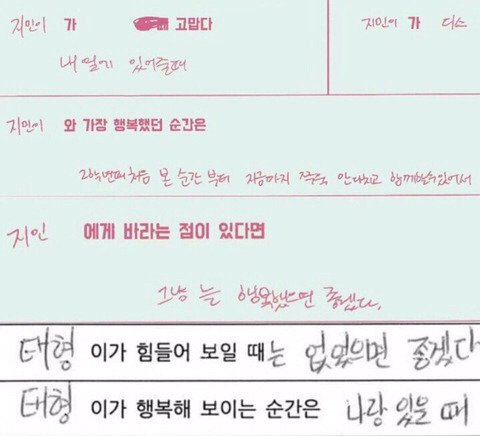 지민이 가 고맙다
지민이 가 디스
내 옆에 있어줄때
지민이 와 가장 행복했던 순간은
2학년때처음 본 순간 부터 지금까지 쭈욱 안다치고 함께할수있어서
지민 에게 바라는 점이 있다면
그냥 늘 행복했으면 좋겠다.
태형 이가 힘들어 보일 때는 없었으면 좋겠다
태형 이가 행복해 보이는 순간은 나랑 있을 때